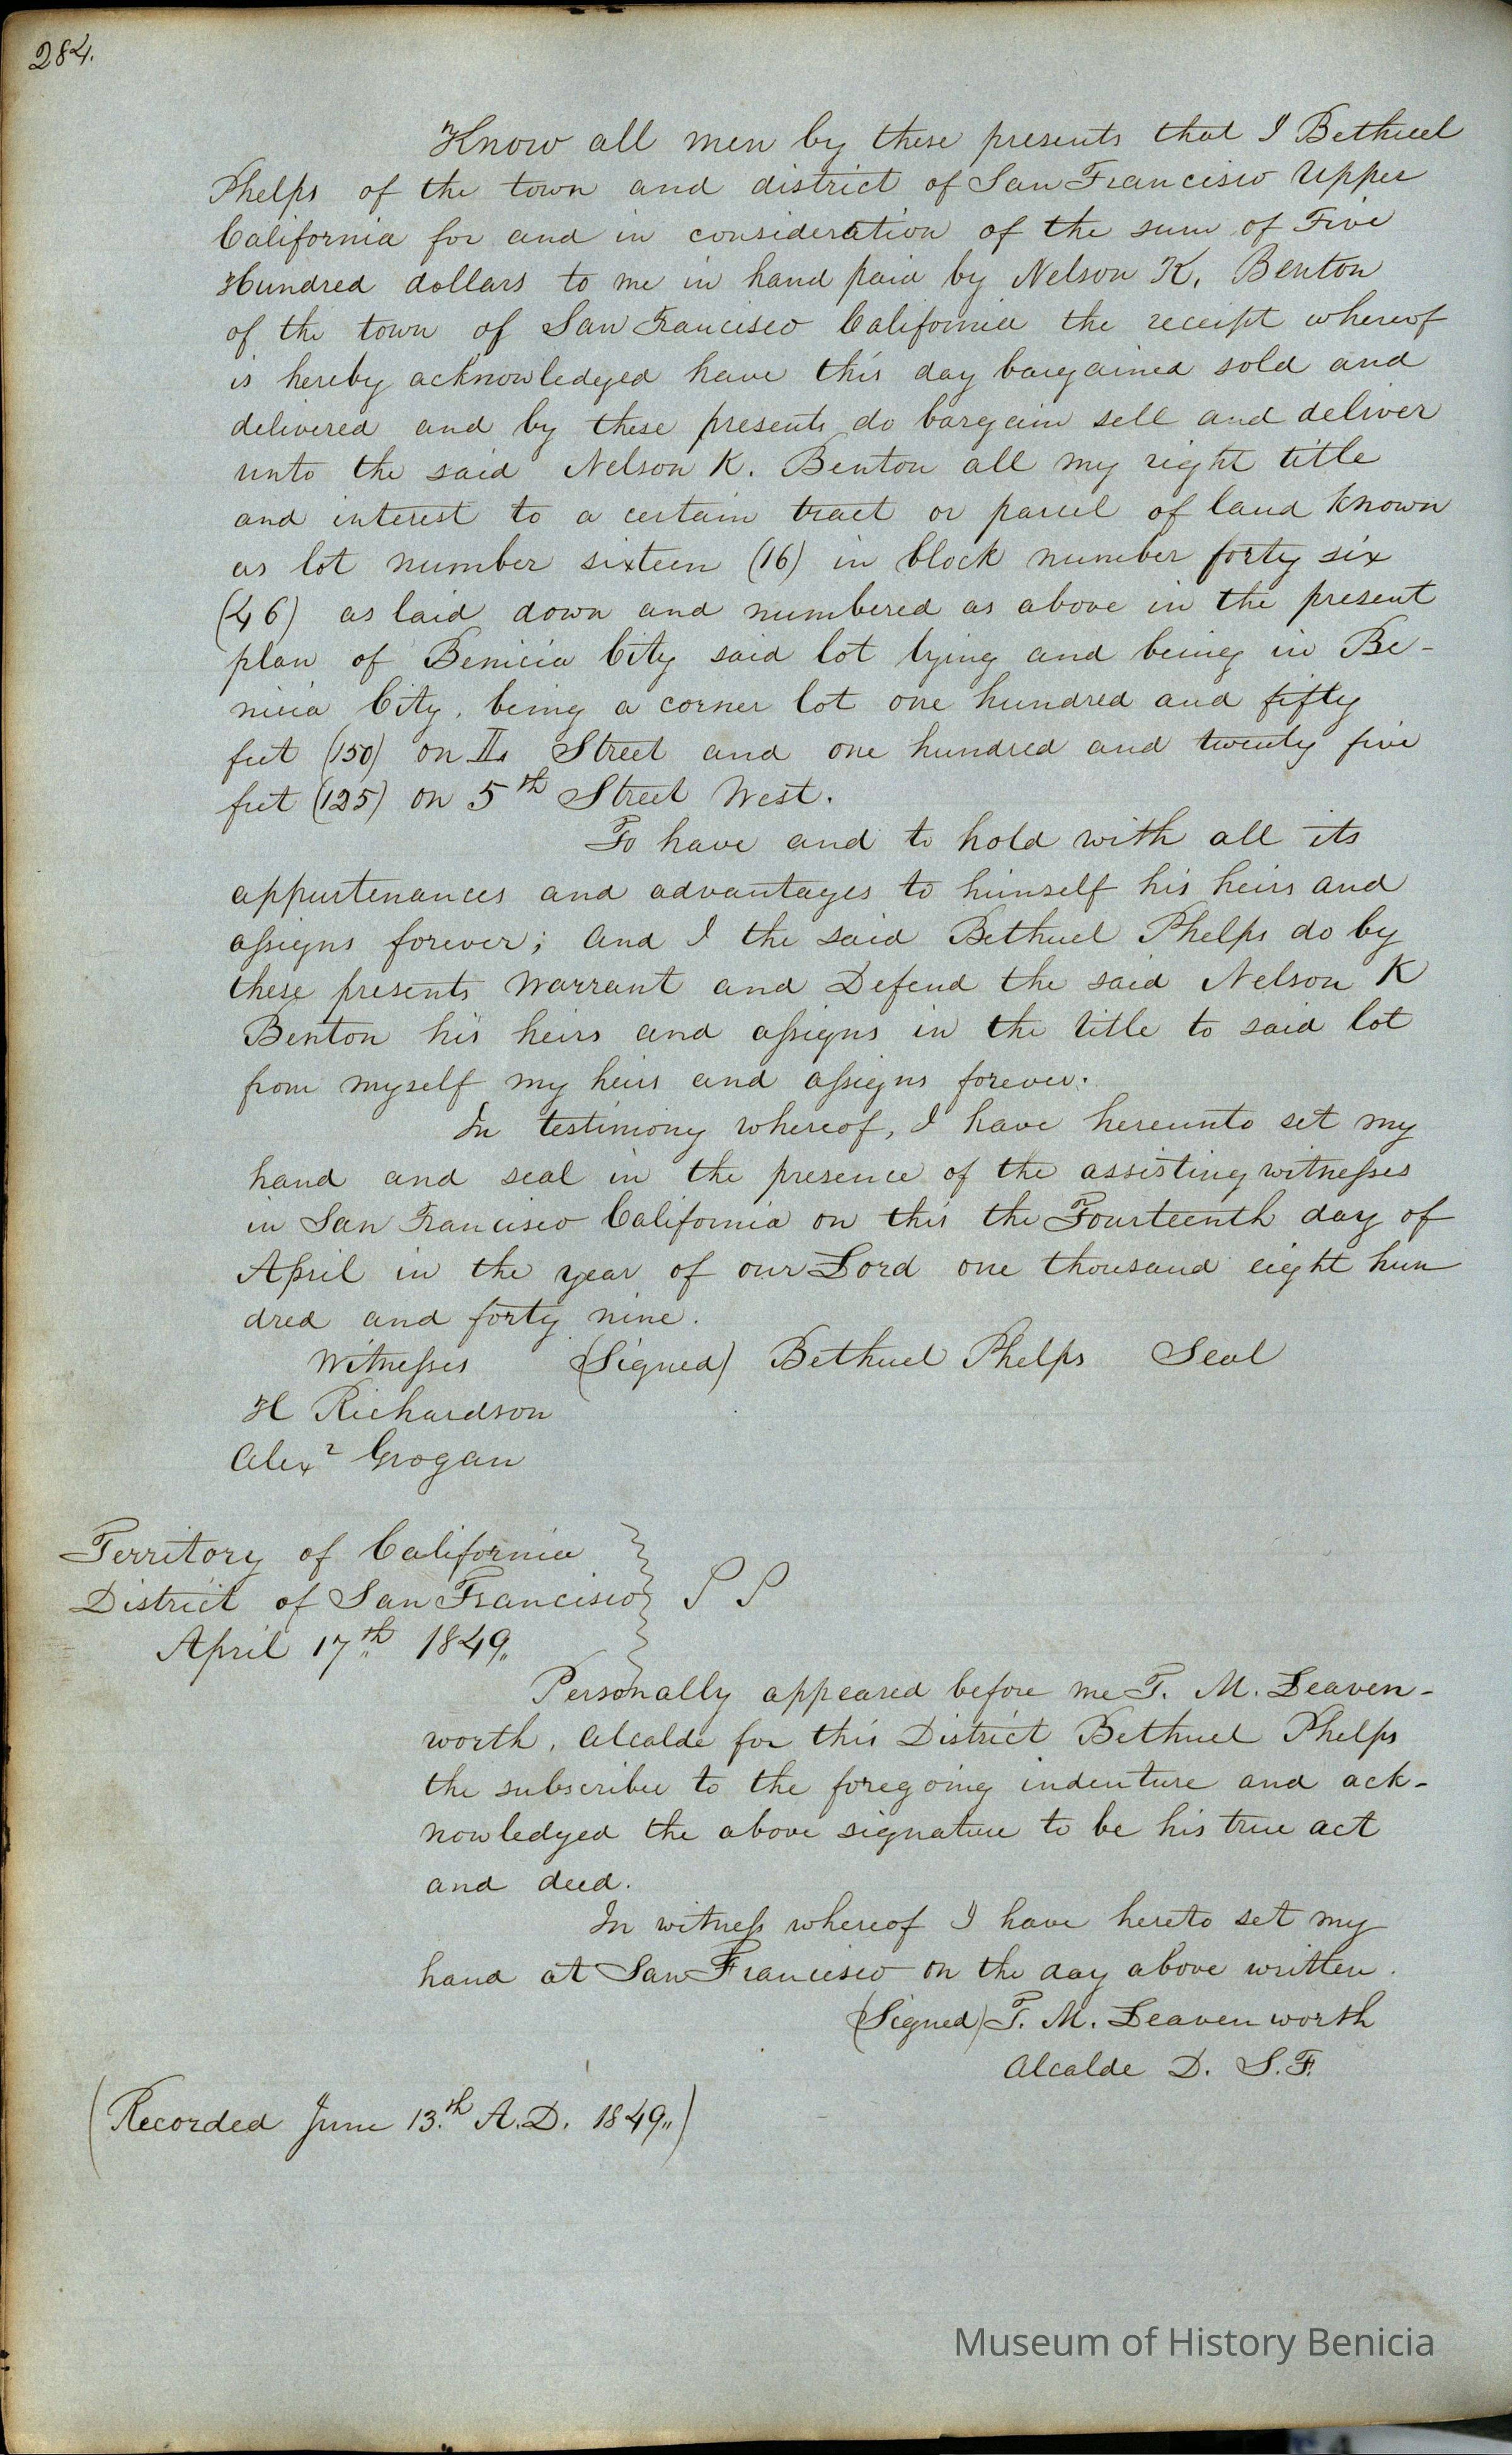 284.
Know all men by these presents that I Bethuel
Phelps of the town and district of San Francisco Upper
California for and in consideration of the sum of Five
Hundred dollars to me in hand paid by Nelson K. Benton
of the town of San Francisco California the receipt whereof
is hereby acknowledged have this day bargained sold and
delivered and by these presents do bargain sell and deliver
unto the said Nelson K. Benton all my right title
and interest to a certain tract or parcel of land known
as lot number sixteen (16) in block number forty six
(46) as laid down and numbered as above in the present
plan of Benicia City said lot lying and being in Be-
nicia City, being a corner lot one hundred and fifty
feet (150) on Street and one hundred and twenty five
feet (125) on 5th Street West.
To have and to hold with all its
appurtenances and advantages to himself his heirs and
assigns forever; and I the said Bethuel Phelps do by
these presents Warrant and Defend the said Nelson K
Benton his heirs and assigns in the title to said lot
from myself my heirs and assigns forever.
In testimony whereof, I have hereunto set my
hand and seal in the presence of the assisting witnesses
in San Francisco California on this the Fourteenth day of
April in the year of our Lord one thousand eight hun
dred and forty nine.
Witnesses (Signed) Bethuel Phelps Seal
H Richardson
Alexr Grogan
Territory of California
District of San Francisco } S S
April 17th 1849.
Personally appeared before me T. M. Leaven-
worth, Alcalde for this District Bethuel Phelps
the subscriber to the foregoing indenture and ack-
nowledged the above signature to be his true act
and deed.
In witness whereof I have hereto set my
hand at San Francisco on the day above written.
(Signed) T. M. Leavenworth
Alcalde D. S. F.
(Recorded June 13.th A.D. 1849.)
Museum of History Benicia